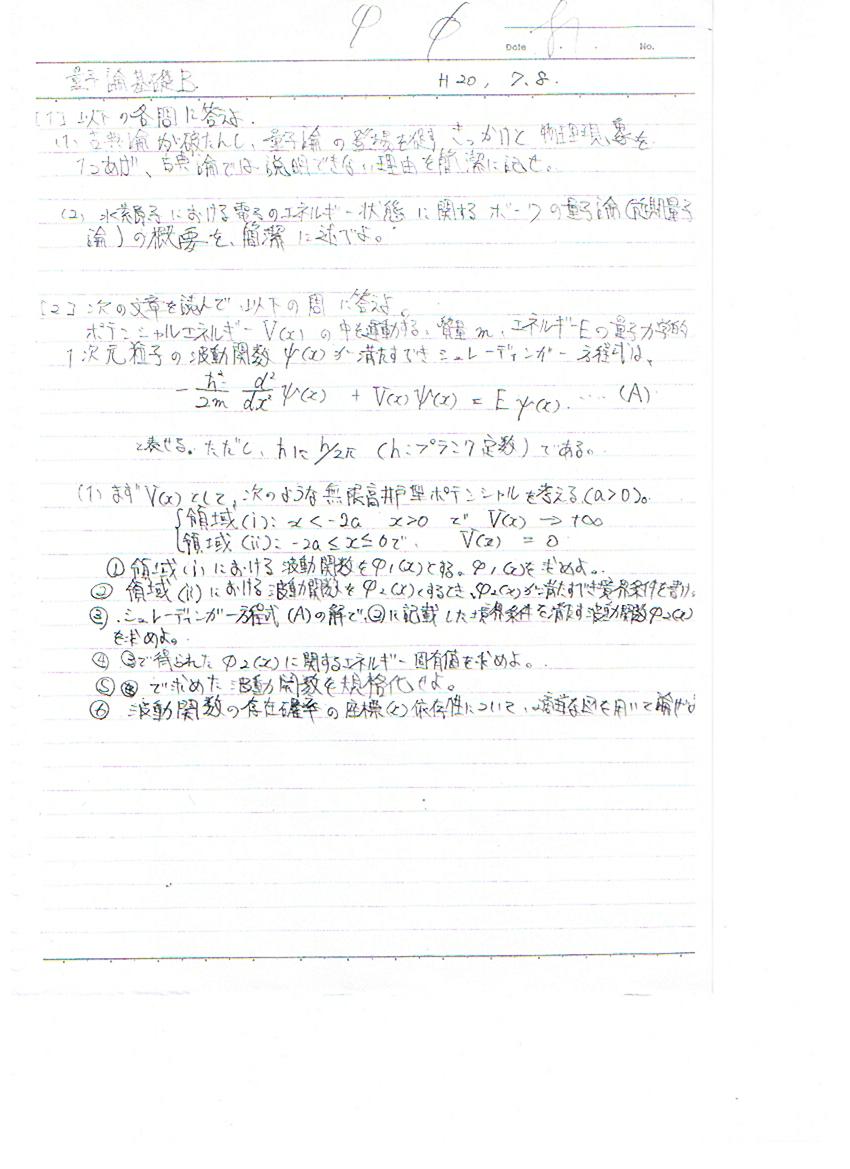 φ φ
Date . . No.
量子論基礎B. H20, 7.8.
[1] 以下の各問に答えよ.
(1) 古典論が破たんし、量子論の登場を促すきっかけと 物理現象を
1つあげ、古典論では説明できない理由を簡潔に記せ。
(2) 水素原子における電子のエネルギー状態に関するボーアの量子論(前期量子
論)の概要を、簡潔に述べよ。
[2] 次の文章を読んで以下の問に答えよ。
ポテンシャルエネルギーV(x)の中を運動する、質量m、エネルギーEの量子力学的
1次元粒子の波動関数ψ(x)が満たすべきシュレーディンガー方程式は、
-ħ²/2m d²/dx² ψ(x) + V(x)ψ(x) = Eψ(x). ‥‥ (A)
と表せる。ただし、ħは h/2π (h:プランク定数)である。
(1) まずV(x)として、次のような無限高井戸型ポテンシャルを考える(a>0)。
{領域(i): x<-2a x>0 で V(x) → +∞
領域(ii): -2a≤x≤0で、 V(x) = 0
① 領域(i)における波動関数をφ1(x)とする。φ1(x)を求めよ。
② 領域(ii)における波動関数をφ2(x)とするとき、φ2(x)が満たすべき境界条件を書け。
③ シュレーディンガー方程式(A)の解で、②に記載した境界条件を満たす波動関数φ2(x)
を求めよ。
④ ③で得られたφ2(x)に関するエネルギー固有値を求めよ。
⑤ で求めた波動関数を規格化せよ。
⑥ 波動関数の存在確率の座標(x)依存性について、適当な図を用いて論ぜよ